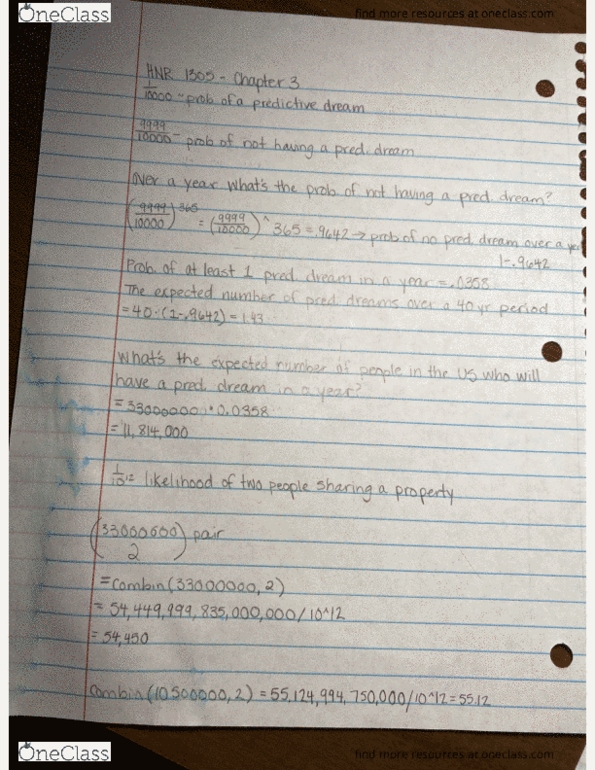 OneClass find more resources at oneclass.com
HNR 1305 - Chapter 3
1/10000 - prob of a predictive dream
9999/10000 - prob of not having a pred. dream
Over a year what's the prob of not having a pred. dream?
(9999/10000)^365 = (9999/10000)^365 = .9642 → prob of no pred dream over a
1-.9642
Prob. of at least 1 pred. dream in a year = .0358
The expected number of pred dreams over a 40 yr period
= 40·(1-.9642) = 1.43
What's the expected number of people in the US who will
have a pred. dream in a year?
= 330000000 * 0.0358
= 11,814,000
1/10^12 likelihood of two people sharing a property
(330000000) pair
2
= combin(330000000, 2)
= 54,449,999,835,000,000/10^12
= 54,450
combin(10500000, 2) = 55,124,994,750,000/10^12 = 55.12
OneClass find more resources at oneclass.com